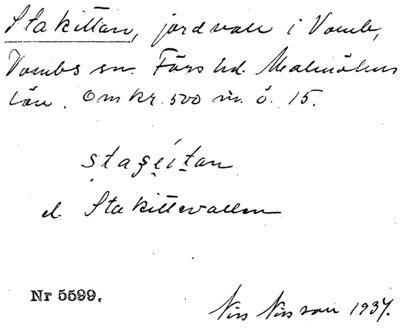 Stakittan, jordvall i Vomb,
Vombs sn. Färs hd. Malmöhus
län. Omkr. 500 m. ö. 15.
staʂeítan
el. Stakittevallen
Nr 5599.
Nils Nilsson 1937.